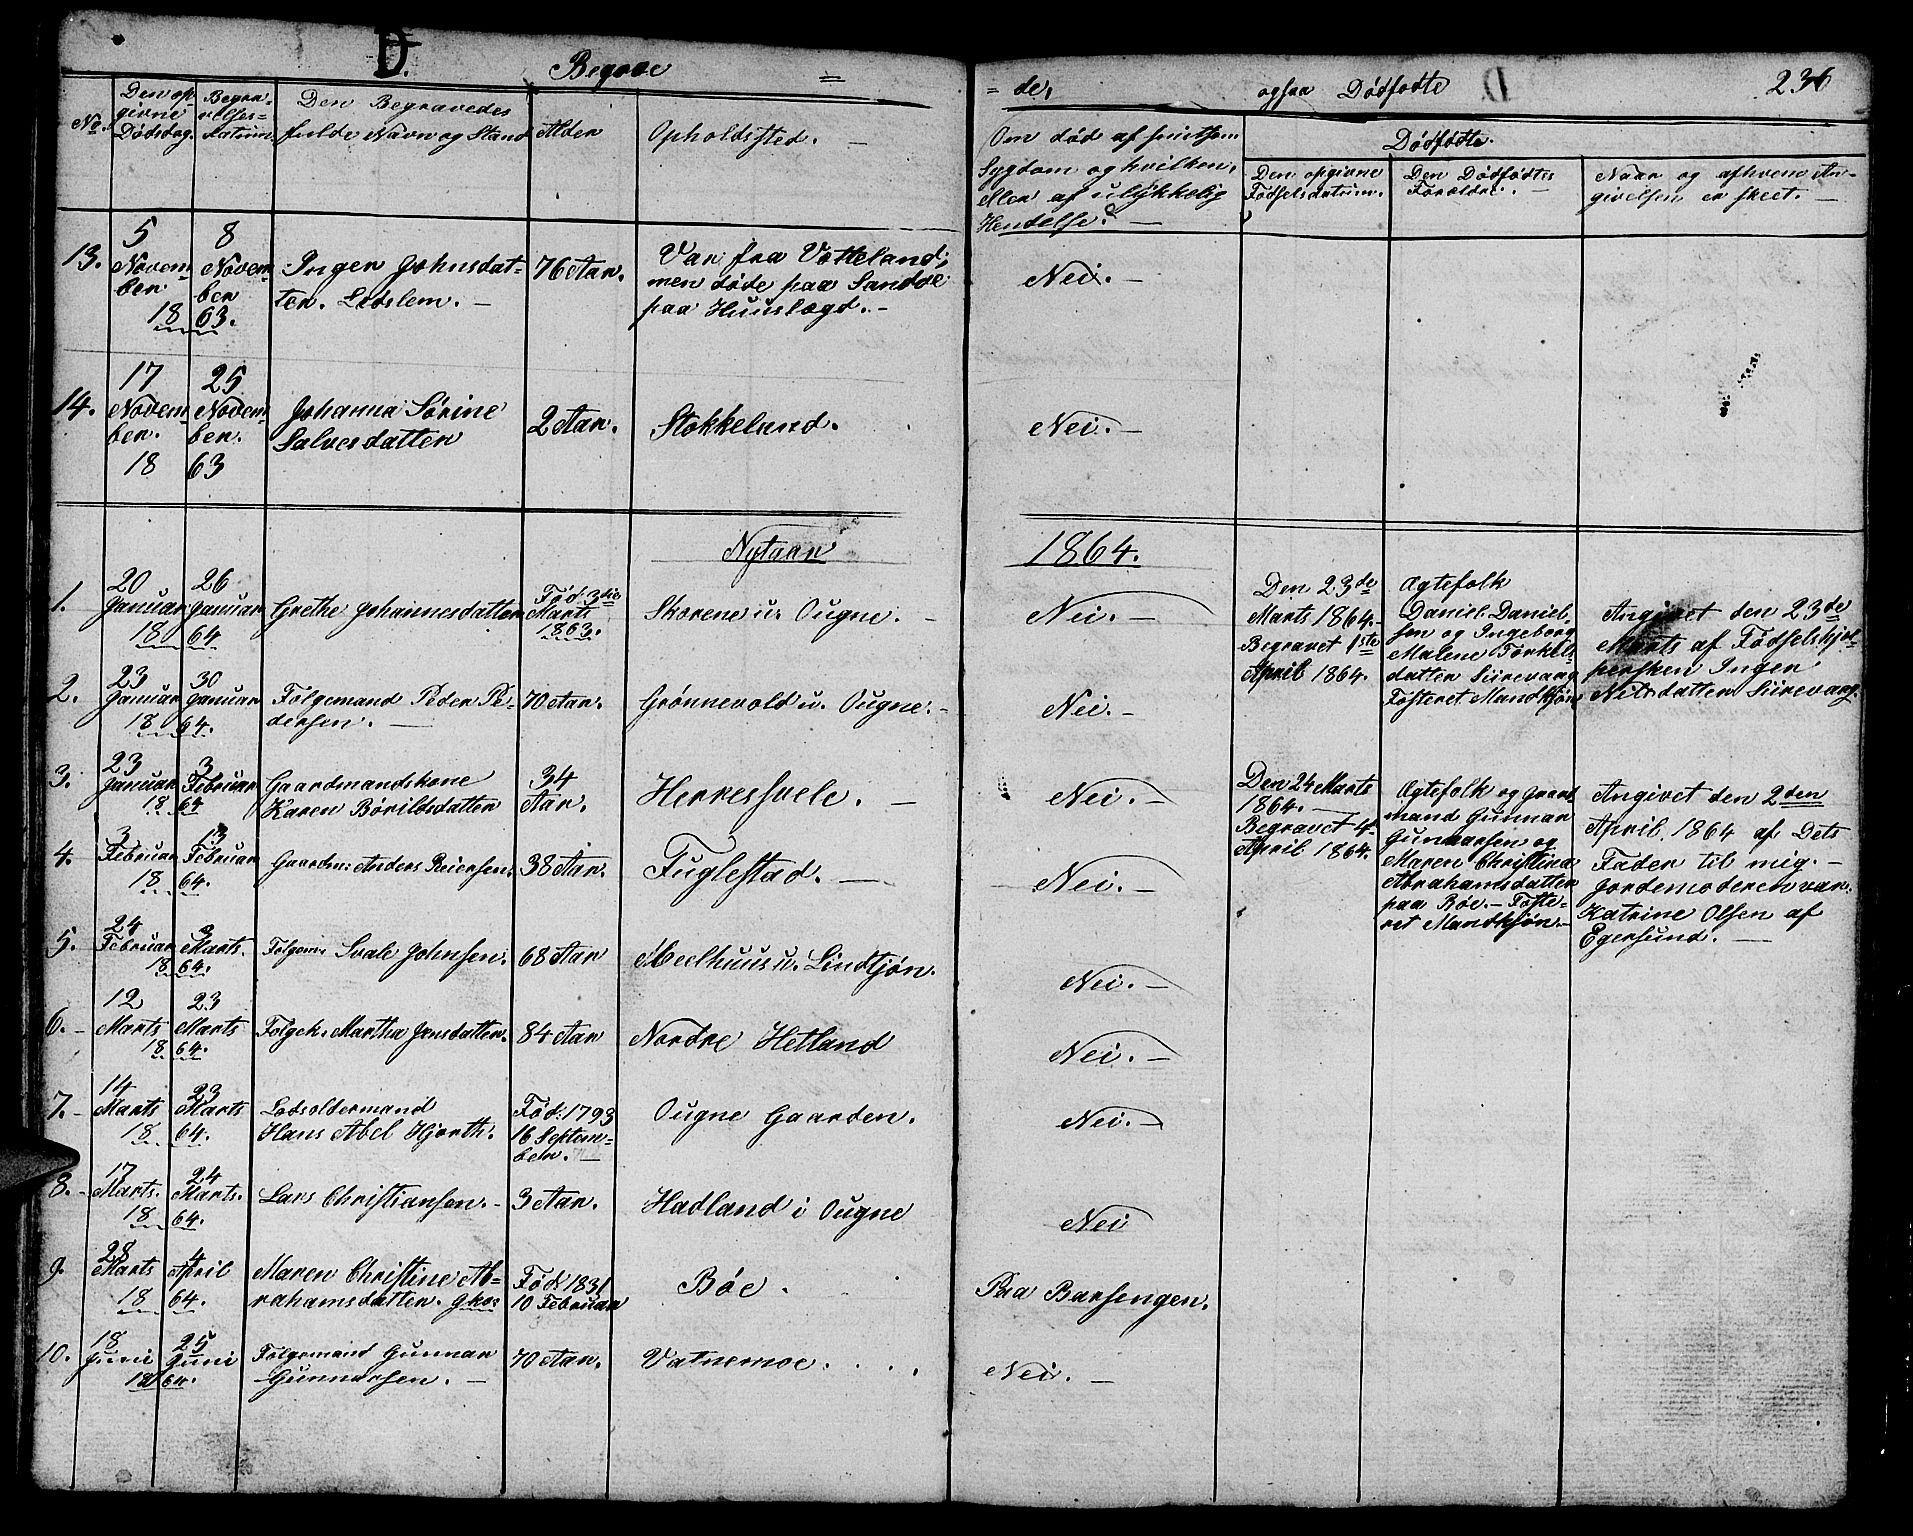 D.
Begrave = = de, ogsaa Dødfødte 236
No. Den opgivne Dødsdag. Begravelses-datum. Den Begravedes fulde Navn og Stand Alder Opholdssted. —
Om død af smitsom Sygdom og hvilken, eller af ulykkelig Hendelse. —
Dødfødte.
Den opgivne Fødselsdatum. Den Dødfødtes Forældre. — Naar og af hvem Angivelsen er skeet. —
13. 5 November 8 November 1863. Inger Johnsdatter. Leds lem. — 76 Aar. Var fra Votteland; men døde paa Sandve paa Huuslægd. — Nei. —
14. 17 November. 25 November. 1863 Johanna Sørine Salvesdatter 2 Aar. Stokkeland. Nei. —
Nytaar 1864.
1. 20 Januar 26 Januar 1864 Grethe Johannesdatter Fød. 3die Marts 1863. Skorene u. Ougne. — Nei. —
2. 23 Januar 30 Januar 1864. Følgemand Peder Pedersen. — 70 Aar. Grønnevold u. Ougne. — Nei. —
3. 23 Januar 3 Februar 1864 Gaardmandskone Karen Børildsdatter 34 Aar. Herressvele. — Nei. —
4. 3 Februar 13 Februar 1864. Gaardm: Anders Reiersen. 38 Aar. Fuglestad. — Nei. —
5. 24 Februar 3 Marts. 1864. Følgem. Svale Johnsen. 68 Aar Meelhuus u. Lindtjøn. Nei. —
6. — 12 Marts 23 Marts 1864. Følgek. Martha Jensdatter. 84 Aar Nordre Hetland Nei. —
7. — 14 Marts 23 Marts 1864. Lodsoldermand Hans Abel Hjorth. Fød: 1793 16 September. — Ougne Gaarden. Nei. —
8. — 17 Marts. 24 Marts. 1864. Lars Christiansen. — 3 Aar. Hadland i Ougne Nei
9. 28 Marts 4 April 1864. Maren Christine Abrahamsdatter. Gkos Fød: 1831 10 Februar Bøe. Paa Barsengen.
10. 18 Juni 25 Juni 1864. Følgemand Gunnar Gunnarsen. — 70 Aar. Vatnemoe. Nei. —
Den 23de
Marts 1864. —
Begravet 1ste
April 1864.
Ægtefolk
Daniel Daniel-
sen og Ingeborg
Malene Torkels-
datter Siirevaag
Fosteret Mandkjøn
Angivet den 23de
Marts af Fødselshjæl-
persken Inger
Nilsdatter Siirevaag.
Den 24 Marts
1864. —
Begravet 4
April 1864.
Ægtefolk og Gaard
mand Gunnar
Gunnarsen og
Maren Christina
Abrahamsdatter
paa Bøe. — Foste-
ret Mandkjøn. —
Angivet den 2den
April 1864 af Dets
Fader til mig. —
Jordemoderen var
Katrine Olsen af
Egersund. —